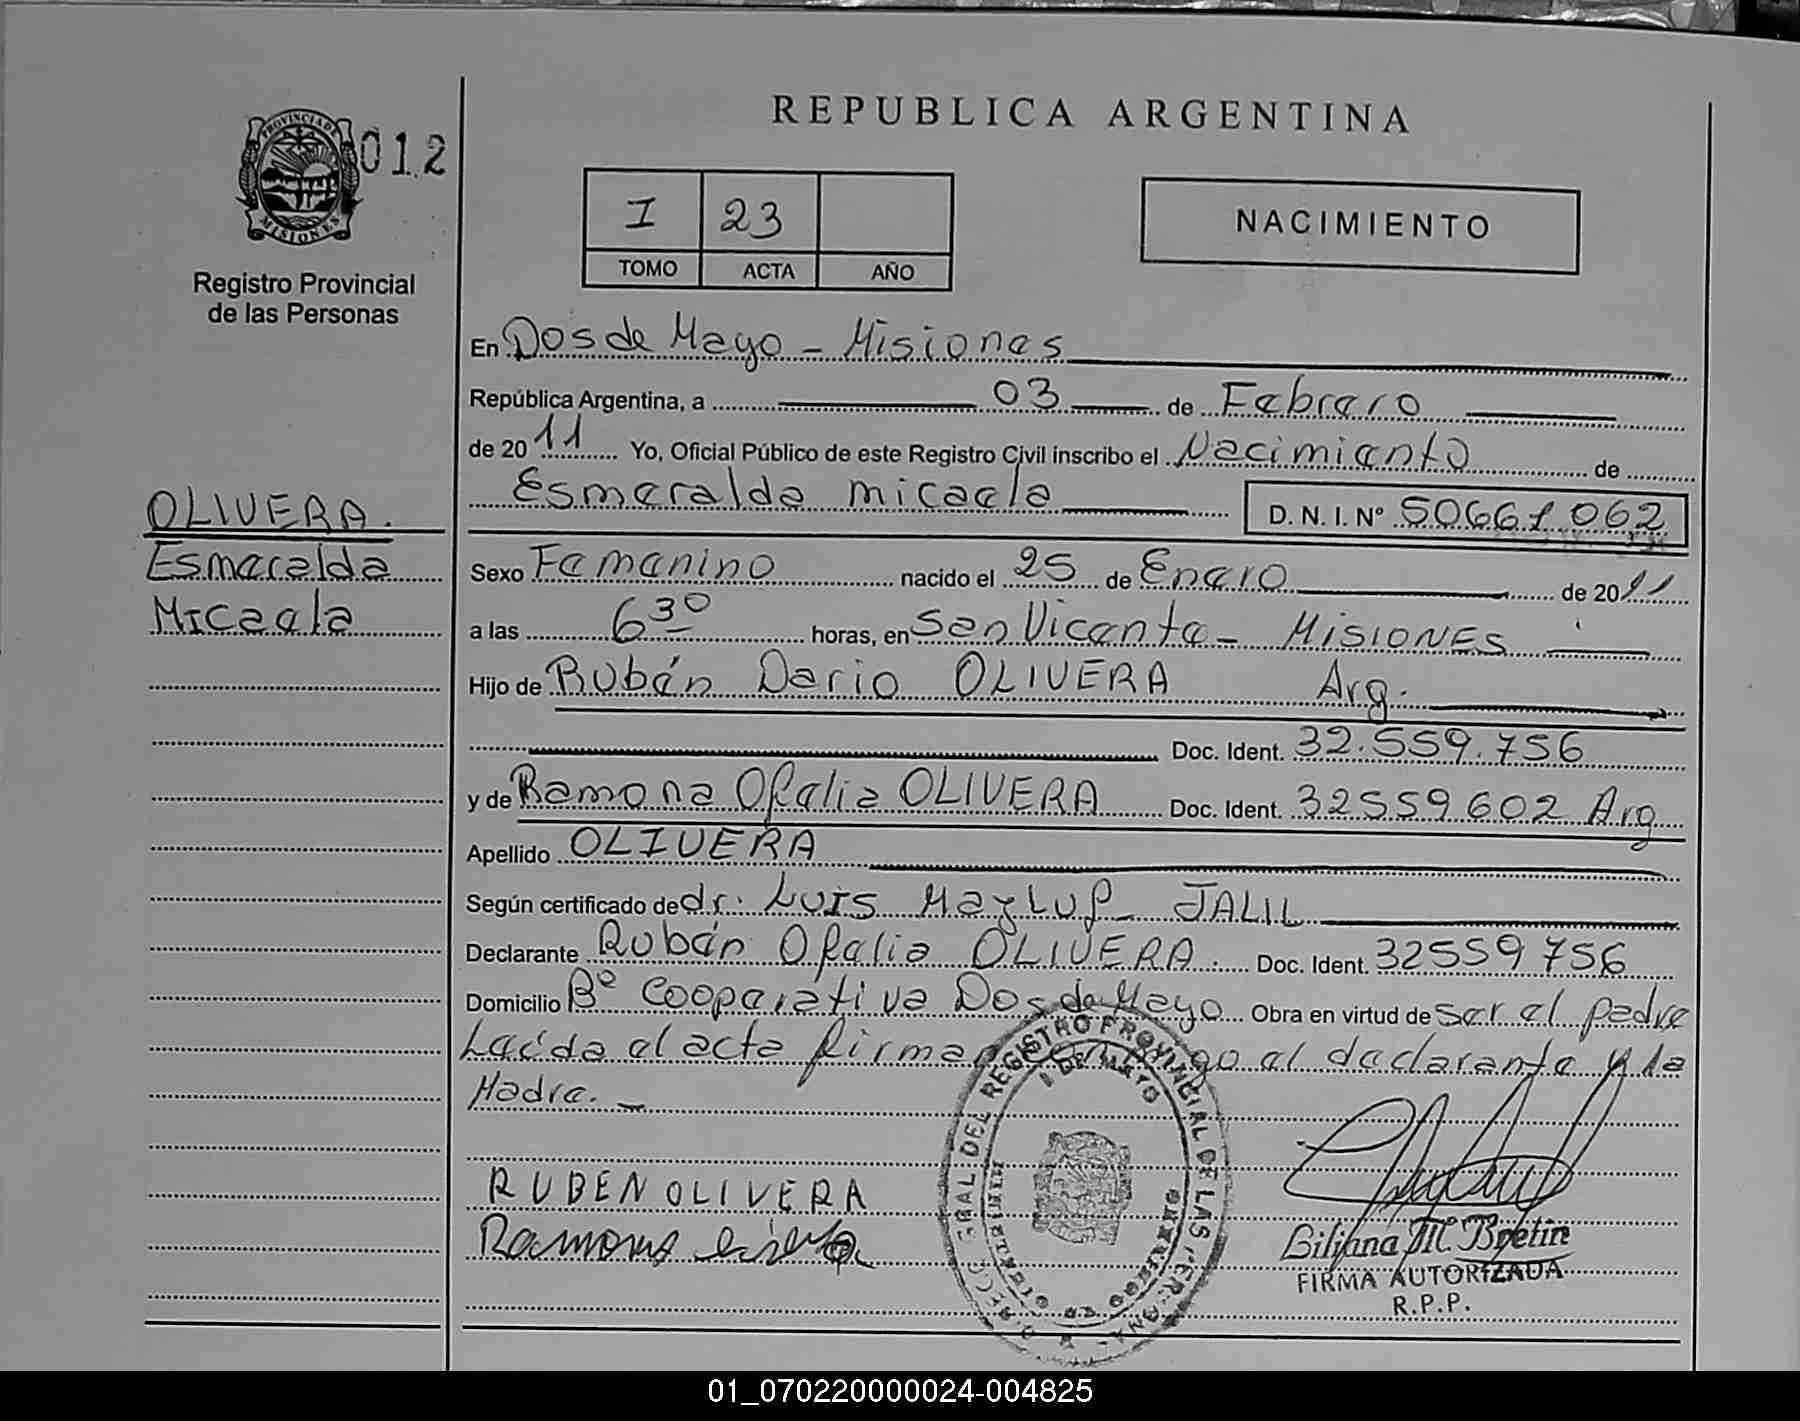 REPUBLICA ARGENTINA
PROVINCIA DE
MISIONES
012
Registro Provincial
de las Personas
I 23
TOMO ACTA AÑO
NACIMIENTO
OLIVERA.
Esmeralda
Micaela
En Dos de Mayo - Misiones
República Argentina, a 03 de Febrero
de 2011 Yo, Oficial Público de este Registro Civil inscribo el Nacimiento de
Esmeralda micaela D. N. I. N° 50661062
Sexo Femenino nacido el 25 de Enero de 2011
a las 6 30 horas, en San Vicente - MISIONES
Hijo de Rubén Dario OLIVERA Arg.
Doc. Ident. 32.559.756
y de Ramona Ofelia OLIVERA Doc. Ident. 32559602 Arg
Apellido OLIVERA
Según certificado de dr. Luis JALIL
Declarante Rubén Ofelia OLIVERA. Doc. Ident. 32559756
Domicilio Bº Cooperativa Dos de Mayo Obra en virtud de ser el padre
Leída el acta firman conmigo el declarante y la
Madre. -
RUBEN OLIVERA
Ramona
GRAL DEL REGISTRO PROVINCIAL DE LAS PER
FIRMA AUTORIZADA
R.P.P.
01_070220000024-004825